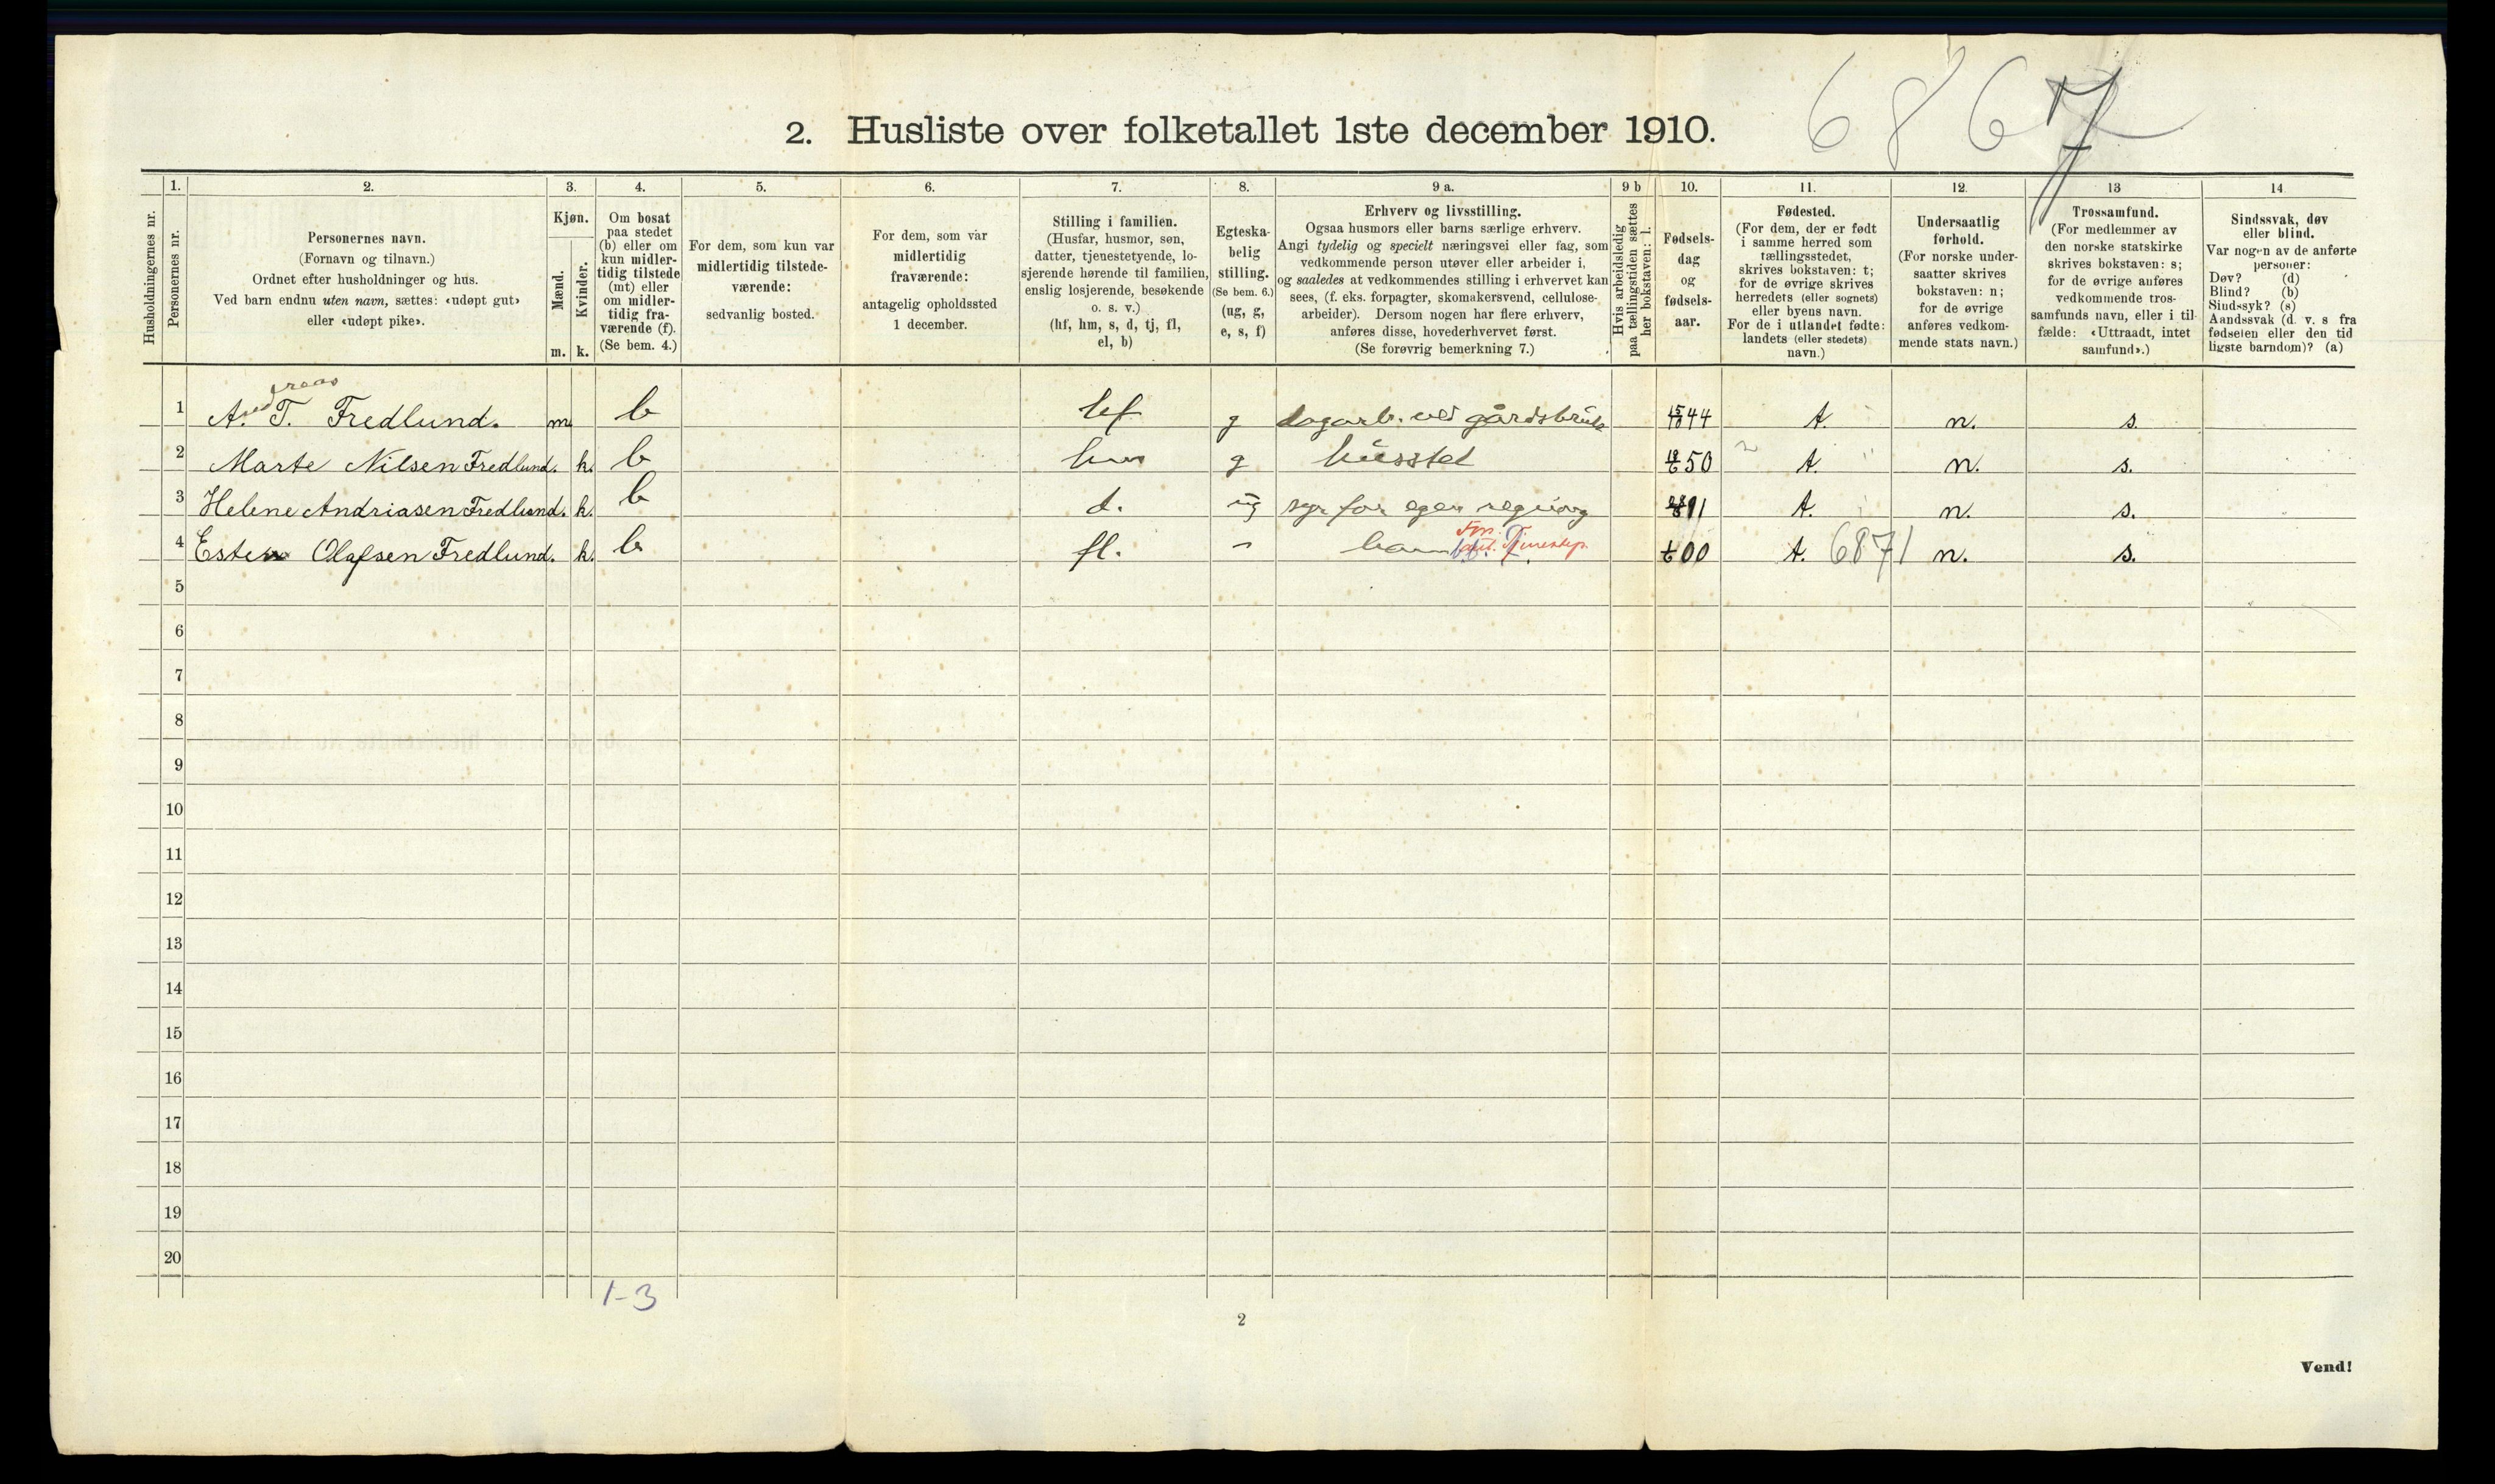 6867
2. Husliste over folketallet 1ste december 1910.
Husholdningernes nr.
1.
Personernes nr.
2.
Personernes navn.
(Fornavn og tilnavn.)
Ordnet efter husholdninger og hus.
Ved barn endnu uten navn, sættes: «udøpt gut»
eller «udøpt pike».
3.
Kjøn.
Mænd.
Kvinder.
m. k.
4.
Om bosat
paa stedet
(b) eller om
kun midler-
tidig tilstede
(mt) eller
om midler-
tidig fra-
værende (f).
(Se bem. 4.)
5.
For dem, som kun var
midlertidig tilstede-
værende:
sedvanlig bosted.
6.
For dem, som var
midlertidig
fraværende:
antagelig opholdssted
1 december.
7.
Stilling i familien.
(Husfar, husmor, søn,
datter, tjenestetyende, lo-
sjerende hørende til familien,
enslig losjerende, besøkende
o. s. v.)
(hf, hm, s, d, tj, fl,
el, b)
8.
Egteska-
belig
stilling.
(Se bem. 6.)
(ug, g,
e, s, f)
9 a.
Erhverv og livsstilling.
Ogsaa husmors eller barns særlige erhverv.
Angi tydelig og specielt næringsvei eller fag, som
vedkommende person utøver eller arbeider i,
og saaledes at vedkommendes stilling i erhvervet kan
sees, (f. eks. forpagter, skomakersvend, cellulose-
arbeider). Dersom nogen har flere erhverv,
anføres disse, hovederhvervet først.
(Se forøvrig bemerkning 7.)
9 b
Hvis arbeidsledig
paa tællingstiden sættes
her bokstaven: l.
10.
Fødsels-
dag
og
fødsels-
aar.
11.
Fødested.
(For dem, der er født
i samme herred som
tællingsstedet,
skrives bokstaven: t;
for de øvrige skrives
herredets (eller sognets)
eller byens navn.
For de i utlandet fødte:
landets (eller stedets)
navn.)
12
Undersaatlig
forhold.
(For norske under-
saatter skrives
bokstaven: n;
for de øvrige
anføres vedkom-
mende stats navn.)
13
Trossamfund.
(For medlemmer av
den norske statskirke
skrives bokstaven: s;
for de øvrige anføres
vedkommende tros-
samfunds navn, eller i til-
fælde: «Uttraadt, intet
samfund».)
14
Sindssvak, døv
eller blind.
Var nogen av de anførte
personer:
Døv? (d)
Blind? (b)
Sindssyk? (s)
Aandssvak (d. v. s. fra
fødselen eller den tid
ligste barndom)? (a)
1 A. T. Fredlund. m b hf g dagarb. ved gårdsbruk 44 t. n. s.
2 Marte Nilsen Fredlund. k. b hm g husstel 50 t. n. s.
3 Helene Andriasen Fredlund. k. b d. ug syr for egen regning 91 t. n. s.
4 Olafsen Fredlund. k. b fl. - barn 00 t. 6871 n. s.
5
6
7
8
9
10
11
12
13
14
15
16
17
18
19
20
1-3
2
Vend!